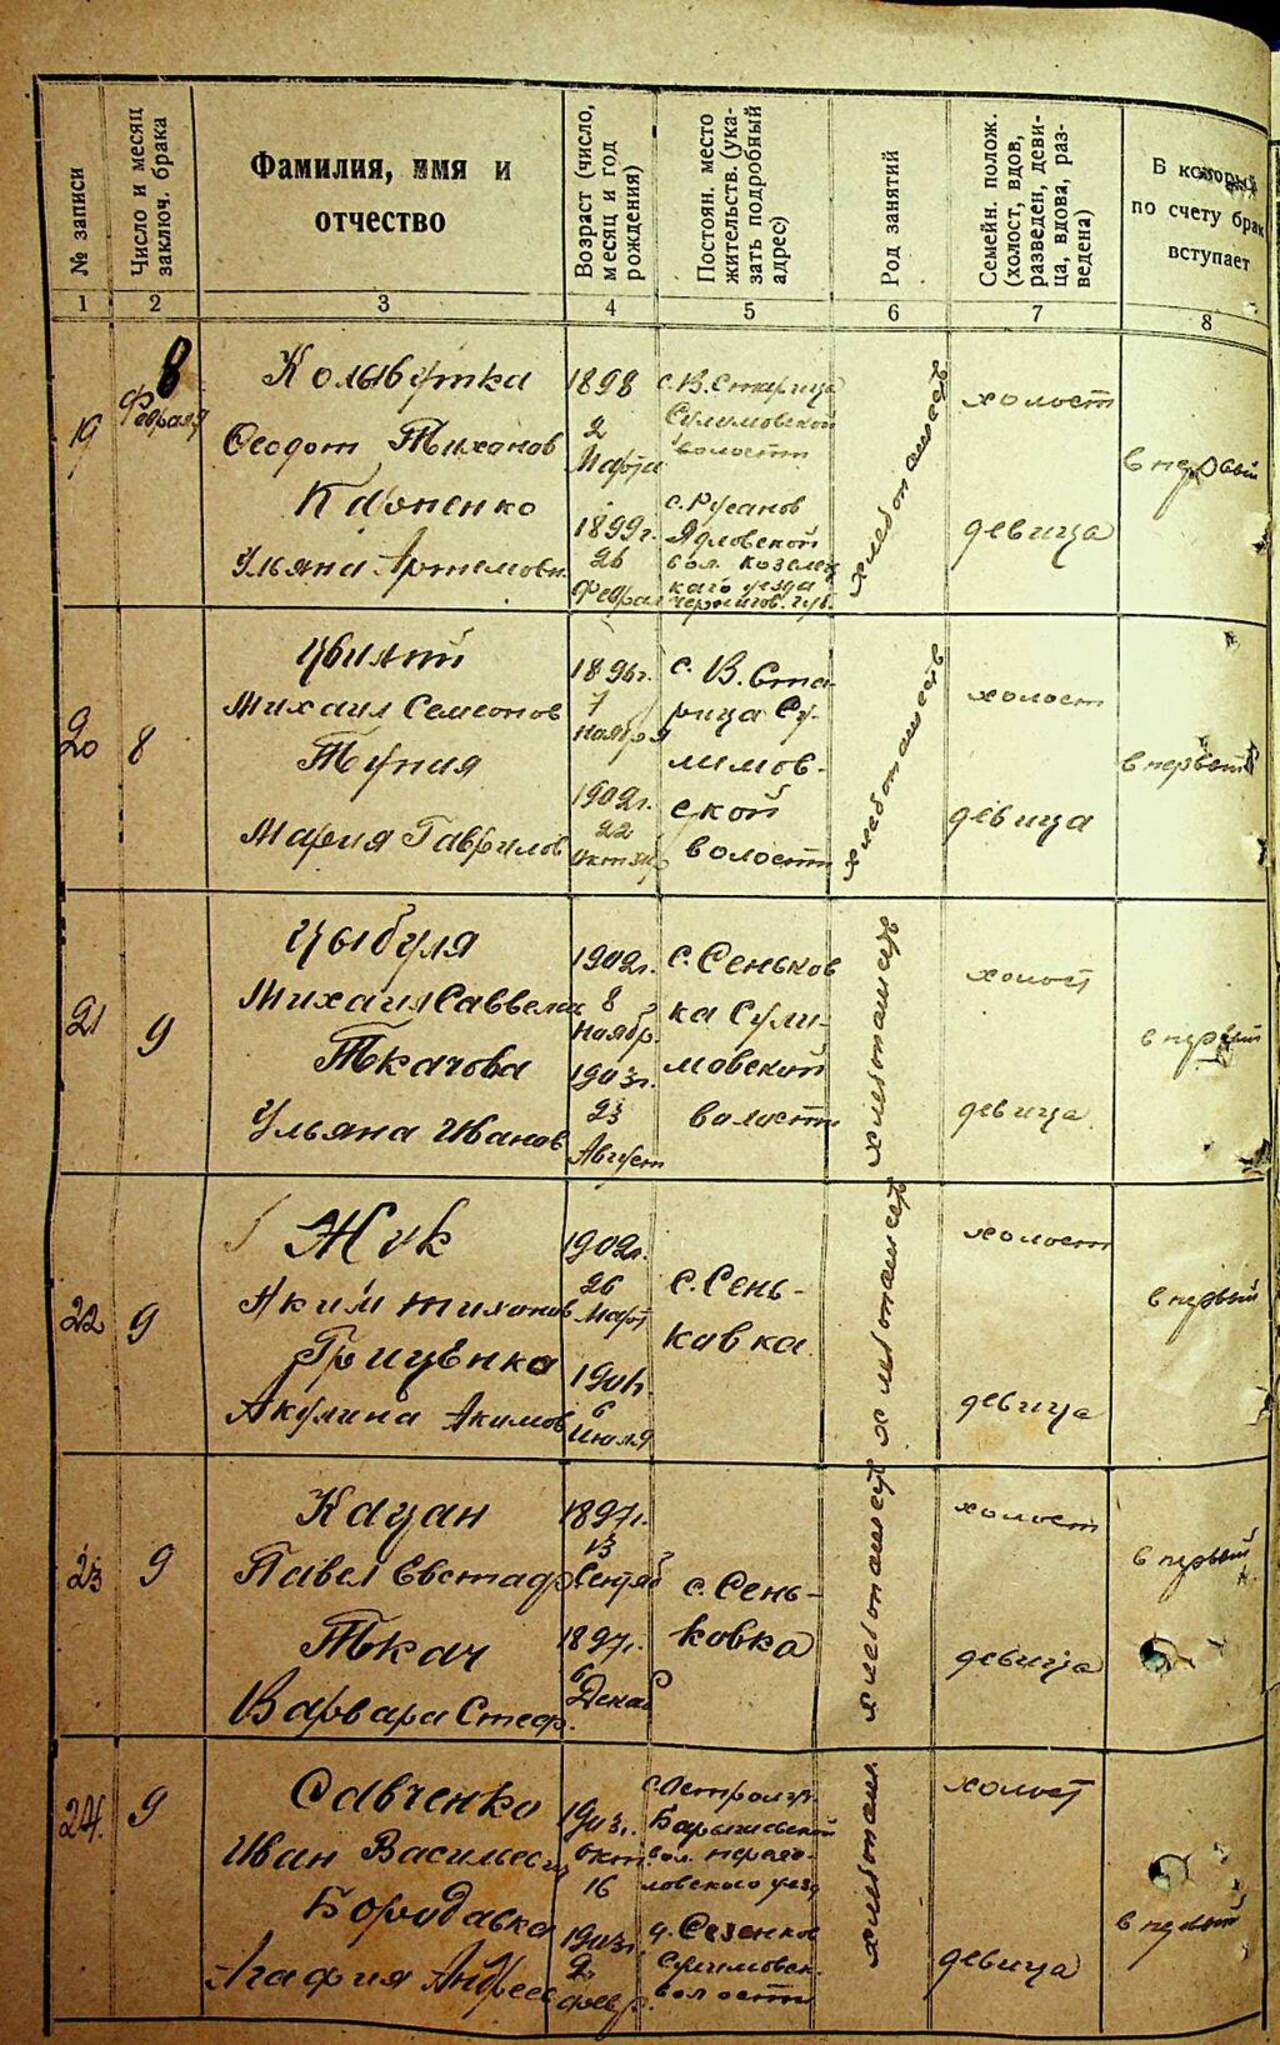 № записи
Число и месяц заключ. брака
Фамилия, имя и отчество
Возраст (число, месяц и год рождения)
Постоян. место жительств. (указать подробный адрес)
Род занятий
Семейн. полож. (холост, вдов, разведен, девица, вдова, разведена)
В который по счету брак вступает
1 2 3 4 5 6 7 8
19
8
Февраля
Колывутка
Феодот Тихонов
Карпенко
Ульяна Артемовн
1898
2
Марта
1899г.
26
Феврал
с. В. Старица
Сулимовской
волости
с. Русанов
Ядловской
вол. козелец
каго уезда
чернигов. губ.
хлебопашест
холост
девица
в первый
20
8
Цвилий
Михаил Семенов
Тупия
Мария Гаврилов
1896г.
7
ноября
1902г.
22
октяб
с. В. Ста-
рица Су-
лимов-
ской
волости
хлебопашеств
холост
девица
в первый
21
9
Цыбуля
Михаил Саввелие
Ткачова
Ульяна Иванов
1902г.
8
Ноябр.
1903г.
23
Август
с. Сеньков
ка Сули-
мовской
волости
хлебопашест
холост
девица
в первый
22
9
Жук
Аким тихонов
Гриценко
Акулина Акимов
1902г.
26
Март
6
Июля
с. Сень-
ковка
хлебопашест
холост
девица
в первый
23
9
Кацан
Павел Евстаф
Ткач
Варвара Стеф.
1897г.
13
Сентяб
1897г.
6
Декаб
с. Сень-
ковка
хлебопашест
холост
девица
в первый
24.
9
Савченко
Иван Васильев
Бородавка
Агафия Андреев
1903г.
окт.
16
1903г.
2
февр.
Барышевской
вол. перея-
ловского уезд
Сезенков
Сулимовск.
волости
хлебопаш.
холост
девица
в первый